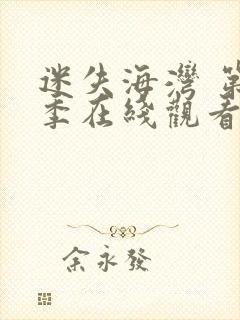 迷失海灣 第
季在綫觀看
余永發